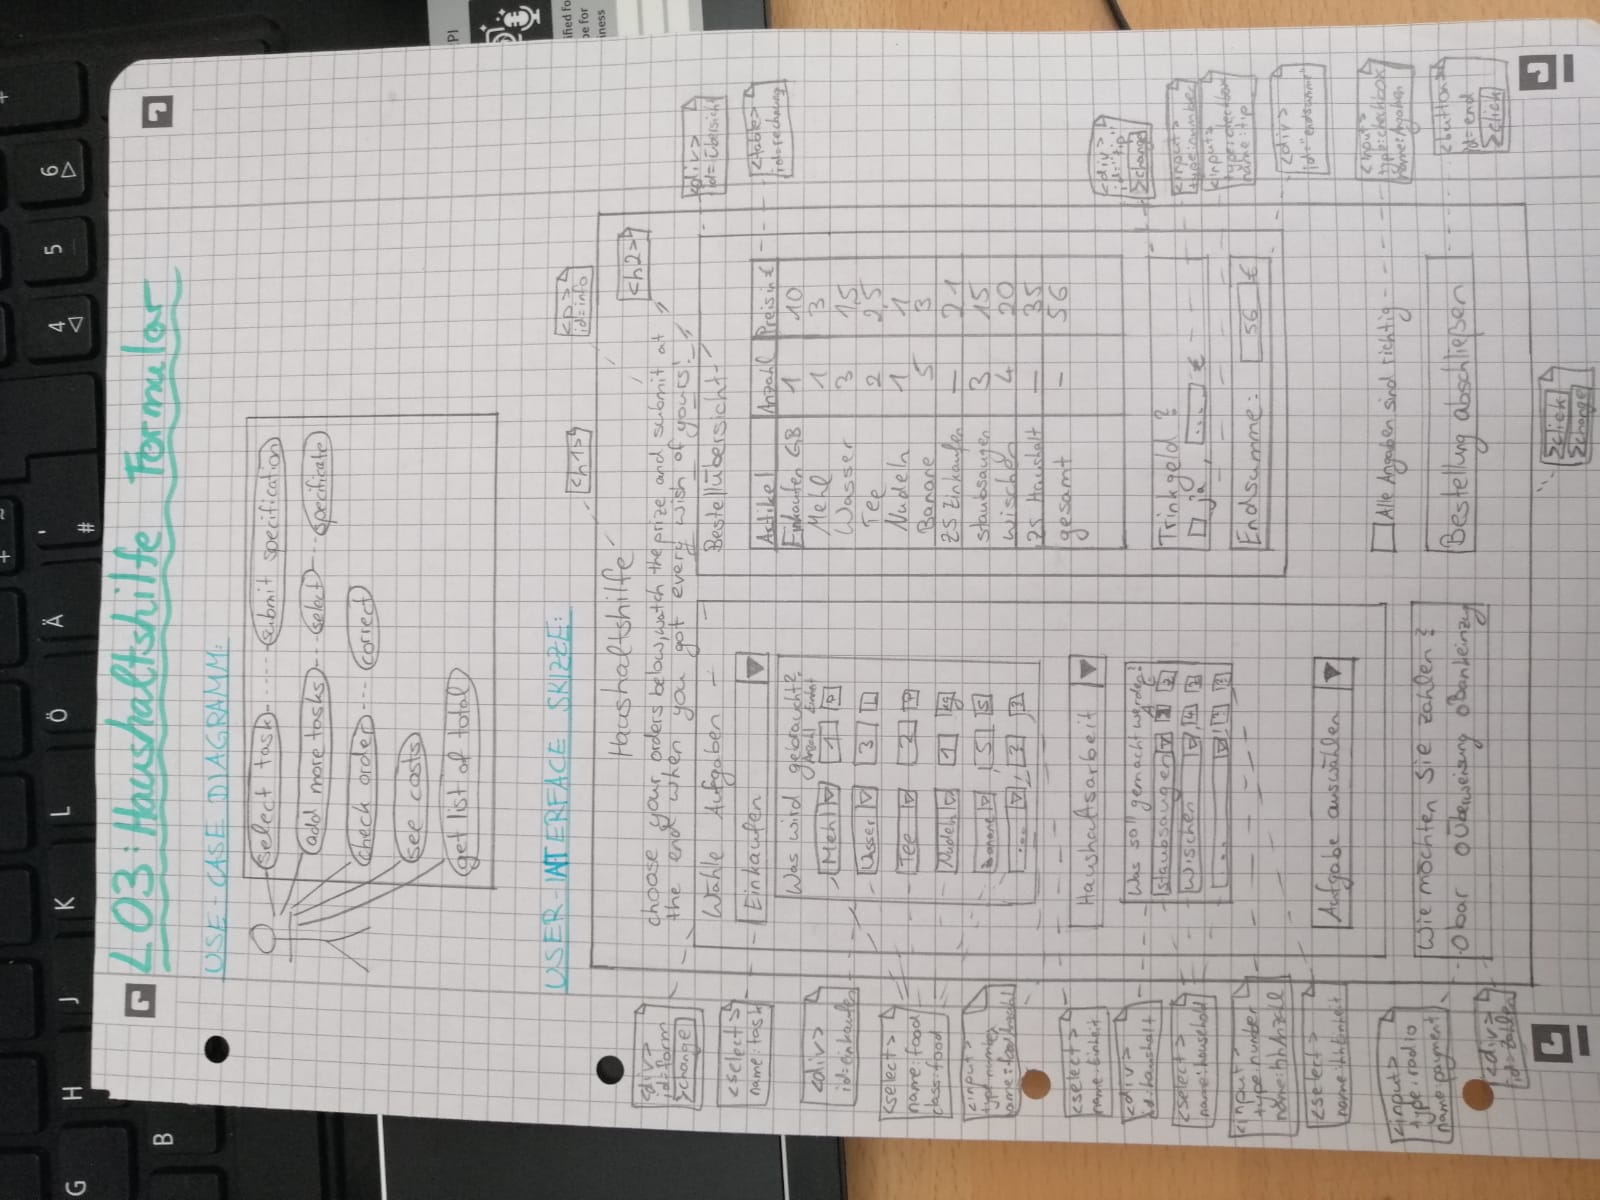 G H J K L Ö Ä ' # 4 5 6
B
L03: Haushaltshilfe Formular
USE-CASE DIAGRAMM:
select task submit specification
add more tasks select specificate
check order correct
see costs
get list of total
USER-INTERFACE SKIZZE:
<h1>
<p>
id=info
<h2>
Haushaltshilfe
choose your orders below, watch the prize and submit at
the end when you got every wish of yours!
<div>
id=form
change
<select>
name:task
<div>
id=einkaufen
<select>
name:food
class:food
<input>
type:number
name:foodAnzahl
<select>
name:Einheit
<div>
id:haushalt
<select>
name:household
<input>
type:number
name:hhAnzahl
<select>
name:hhEinheit
<input>
type:radio
name:payment
<div>
id=zahlen
Wähle Aufgaben
Einkaufen
Was wird gebraucht?
Anzahl Einheit
Mehl 1 P
Wasser 3 L
Tee 2 P
Nudeln 1 kg
Banane 5 S
... ? ?
Haushaltsarbeit
Was soll gemacht werden?
A E
staubsaugen
wischen 4
...
Aufgabe auswählen
Wie möchten Sie zahlen?
bar Überweisung Bankeinzug
Bestellübersicht
Artikel Anzahl Preis in €
Einkaufen GB 1 10
Mehl 1 3
Wasser 3 1,5
Tee 2 2,5
Nudeln 1 1
Banane 5 3
ZS Einkaufen — 21
staubsaugen 3 15
wischen 4 20
ZS Haushalt — 35
gesamt - 56
Trinkgeld?
ja, ... €
Endsumme: 56 €
Alle Angaben sind richtig
Bestellung abschließen
<div>
id=Übersicht
<table>
id=rechnung
<div>
id="tip"
change
<input>
type:number
<input>
type:checkbox
name:tip
<div>
id="endsumme"
<input>
type:checkbox
name:Angaben
<button>
id=end
click
click
change
PI
ified fo
be for
iness